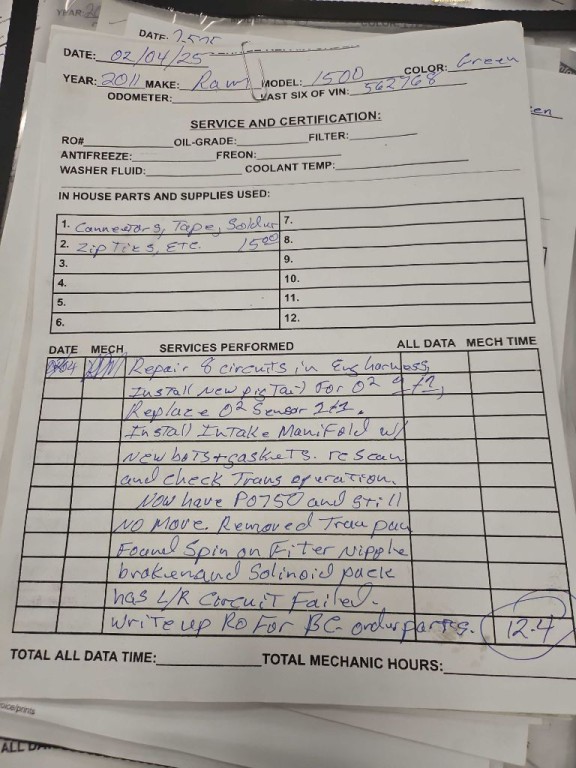 YEAR 20
DATE: 2525
DATE: 02/04/25
YEAR: 2011 MAKE: Ram MODEL: 1500 COLOR: Green
ODOMETER: LAST SIX OF VIN: 562768
en
SERVICE AND CERTIFICATION:
RO# OIL-GRADE: FILTER:
ANTIFREEZE: FREON:
WASHER FLUID: COOLANT TEMP:
IN HOUSE PARTS AND SUPPLIES USED:
1. Connectors, Tape, Soldur 7.
2. Zip Ties, ETC. 1500 8.
3. 9.
4. 10.
5. 11.
6. 12.
DATE MECH SERVICES PERFORMED ALL DATA MECH TIME
Repair 8 circuits in Eng harness,
Install New pigTail For O2 2/1,
Replace O2 Sensor 2/1.
Install Intake Manifold w/
New bots + gaskets. reScan
and check Trans operation.
Now have P0750 and still
No Move. Removed Tran pan
Found Spin on Fiter Nipple
broken and Solinoid pack
has L/R Circuit Failed.
Write up RO For BC- order parts. 12.4
TOTAL ALL DATA TIME: TOTAL MECHANIC HOURS:
ALL DA